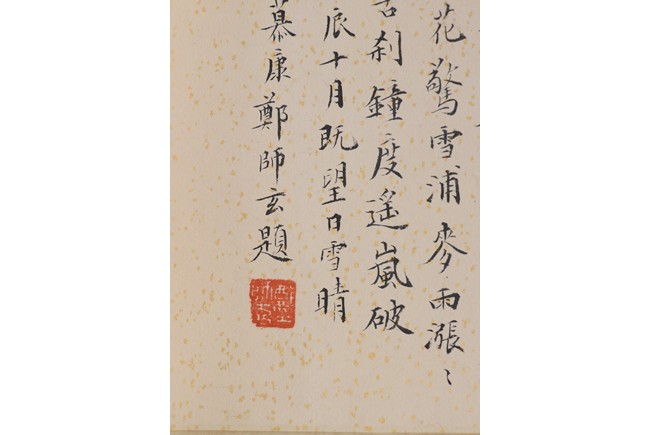 花驚雪浦麥雨漲〻
古刹鐘度遥嵐破
辰十月既望日雪晴
慕康鄭師玄題